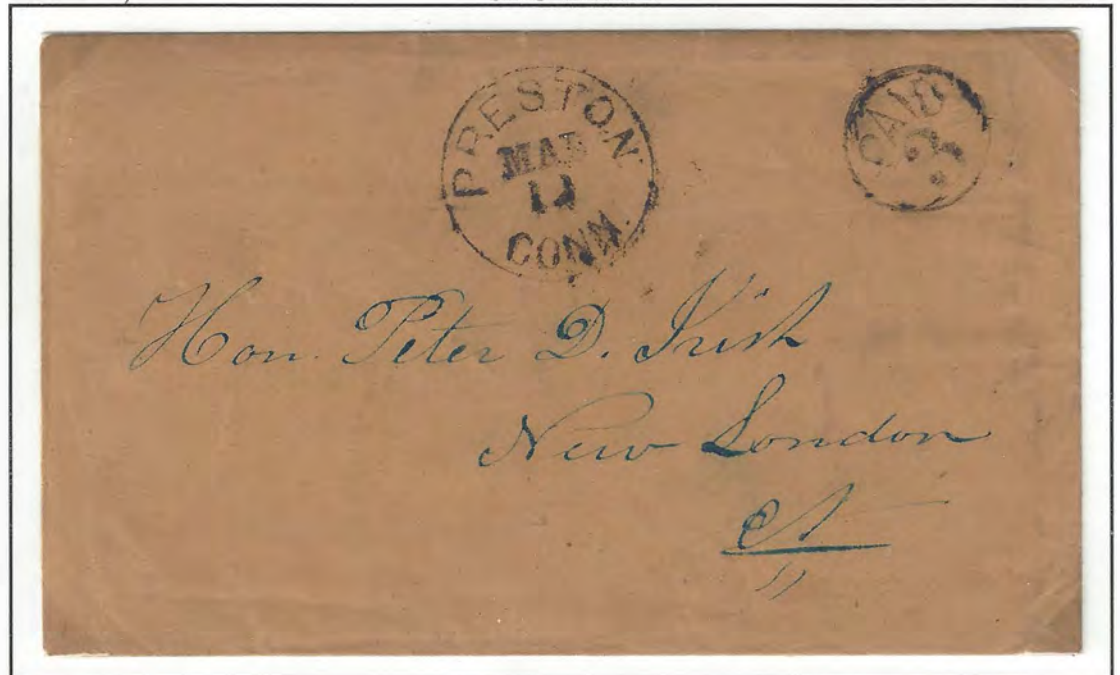 PRESTON
MAR
CONN.
PAID
3
Hon. Peter D. Irish
New London
Ct